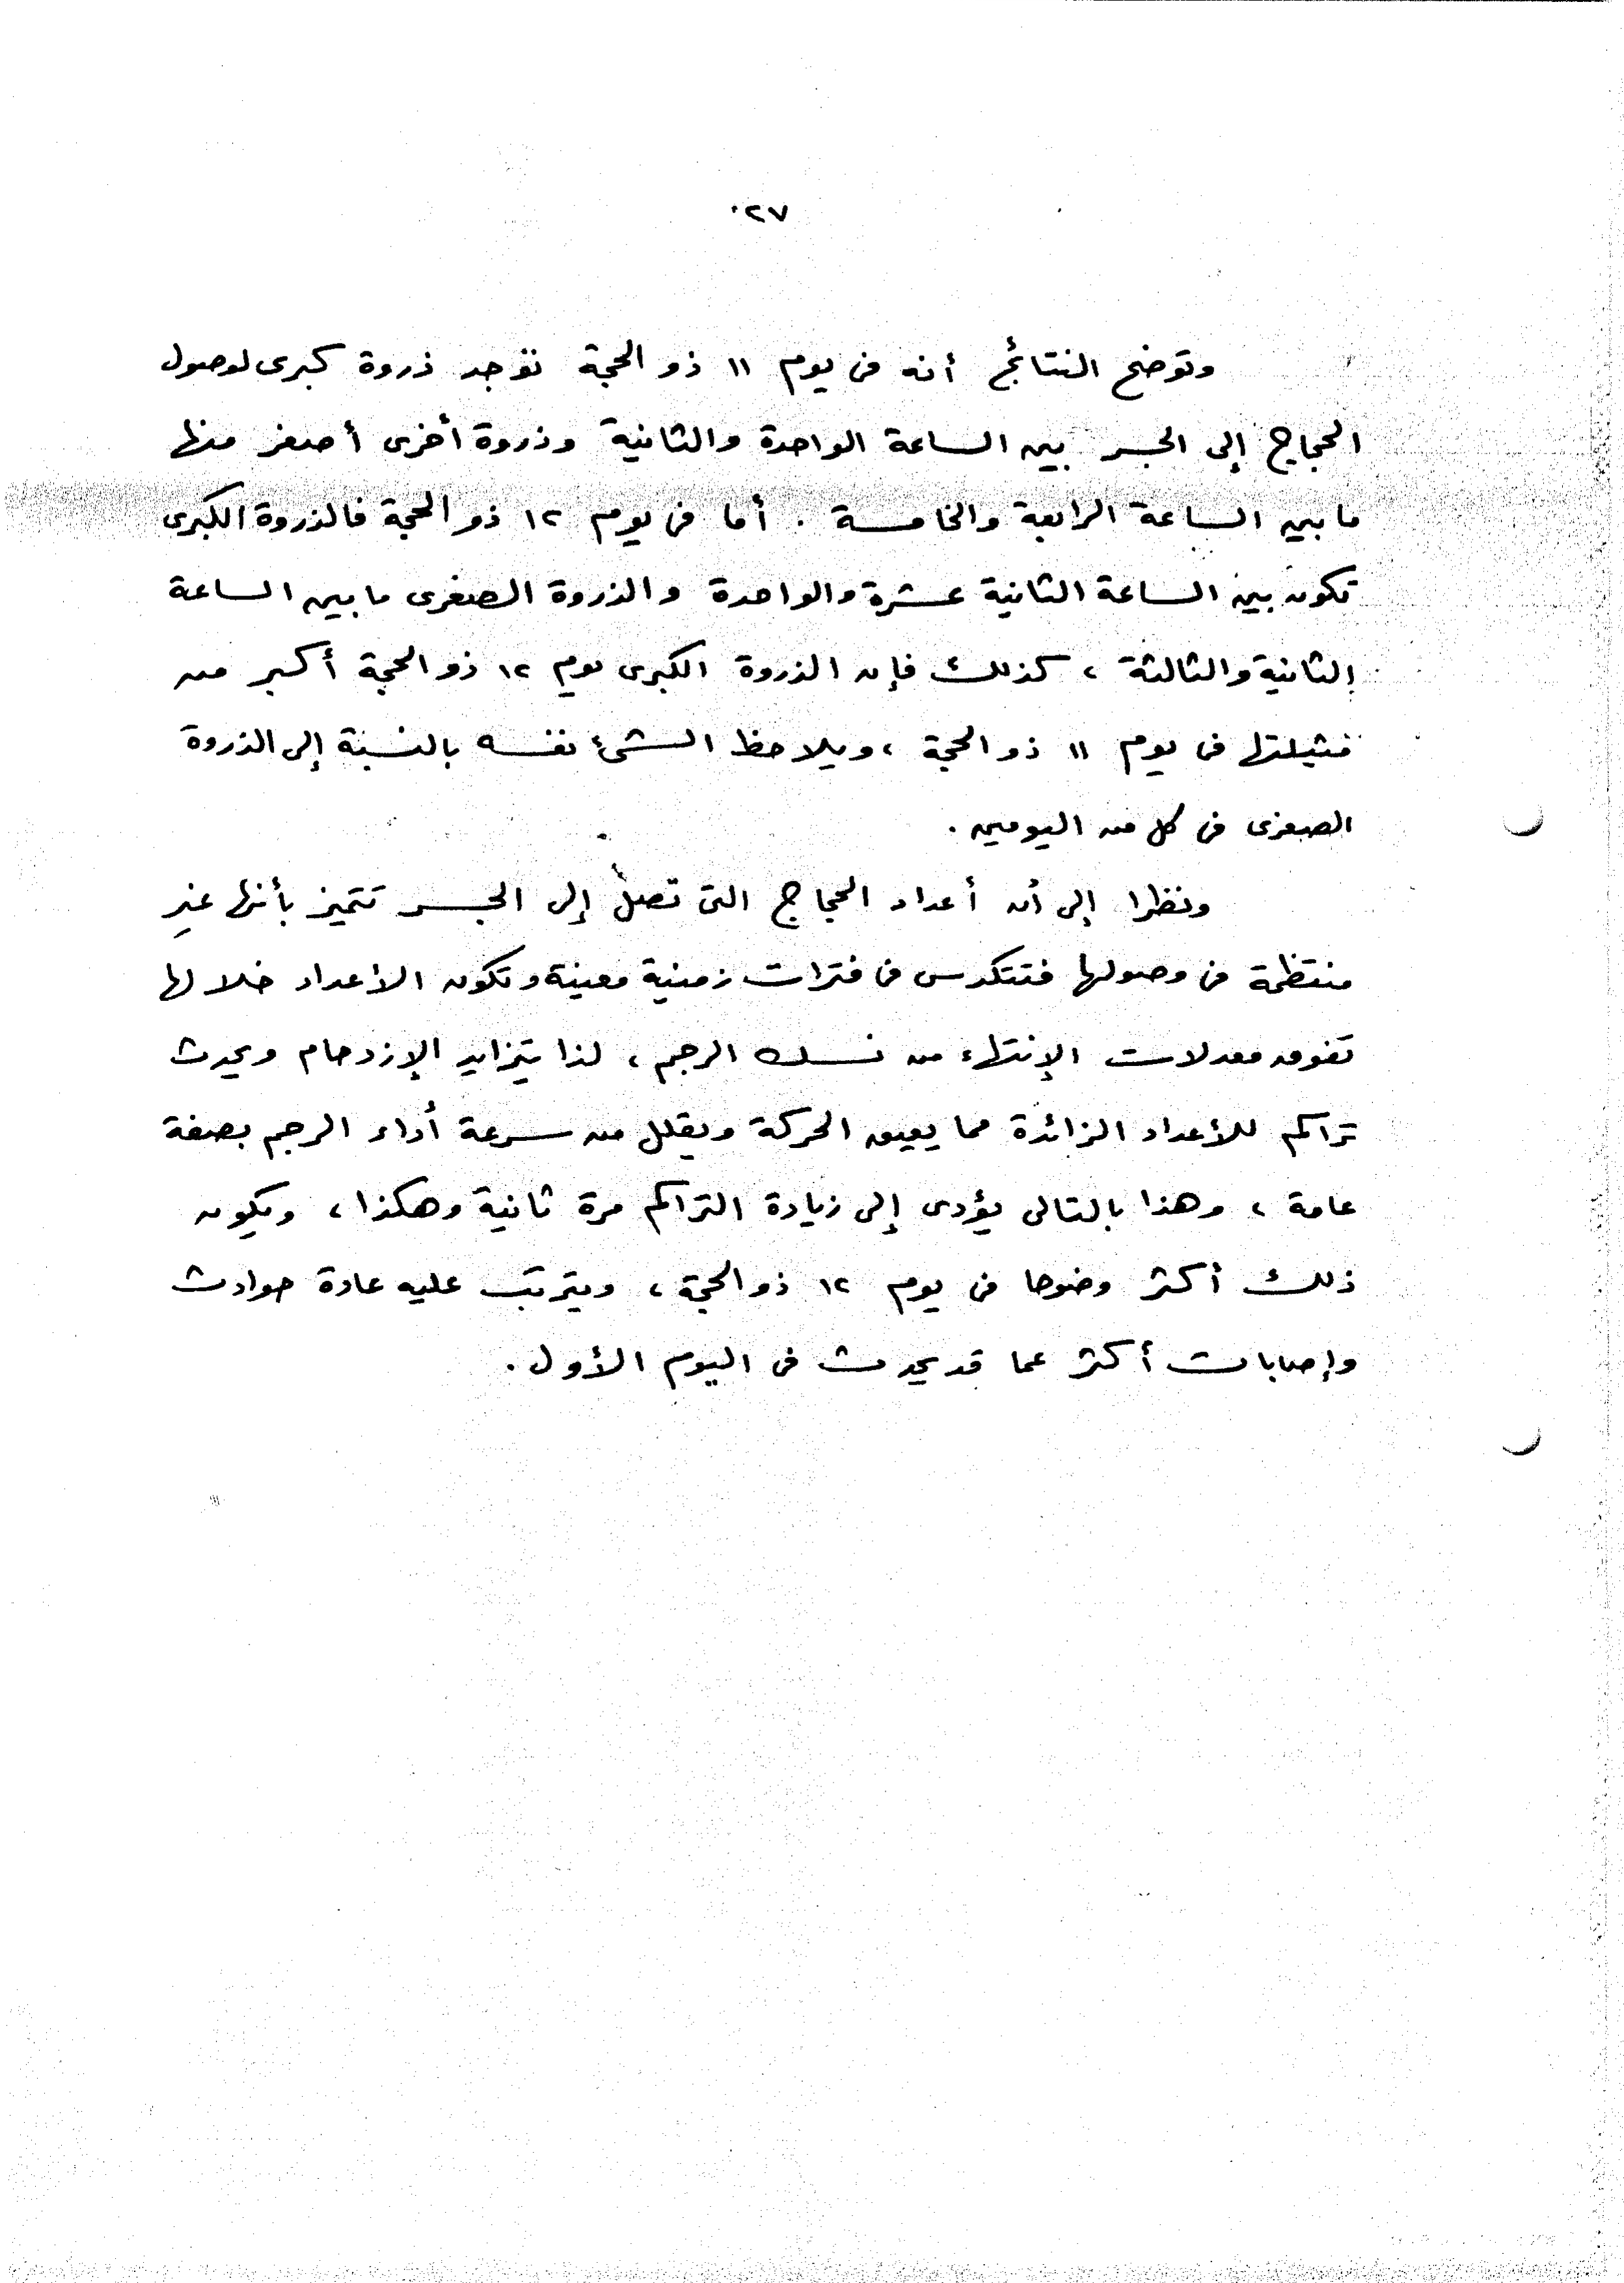 ٢٧
وتوضح النتائج أنه فى يوم ١١ ذو الحجة توجد ذروة كبرى لوصول
الحجاج إلى الجسر بين الساعة الواحدة والثانية وذروة أخرى أصغر منها
ما بين الساعة الرابعة والخامسة . أما فى يوم ١٢ ذو الحجة فالذروة الكبرى
تكون بين الساعة الثانية عشرة والواحدة والذروة الصغرى ما بين الساعة
الثانية والثالثة ، كذلك فإن الذروة الكبرى يوم ١٢ ذو الحجة أكبر من
مثيلتها فى يوم ١١ ذو الحجة ، ويلاحظ الشئ نفسه بالنسبة إلى الذروة
الصغرى فى كل من اليومين .
ونظرا إلى أن أعداد الحجاج التى تصل إلى الجسر تتميز بأنها غير
منتظمة فى وصولها فتتكدس فى فترات زمنية معينة وتكون الأعداد خلالها
تفوق معدلات الإنتهاء من نسك الرجم ، لذا يتزايد الإزدحام ويحدث
تراكم للأعداد الزائدة مما يعيق الحركة ويقلل من سرعة أداء الرجم بصفة
عامة ، وهذا بالتالى يؤدى إلى زيادة التراكم مرة ثانية وهكذا ، ويكون
ذلك أكثر وضوحا فى يوم ١٢ ذو الحجة ، ويترتب عليه عادة حوادث
وإصابات أكثر عما قد يحدث فى اليوم الأول .